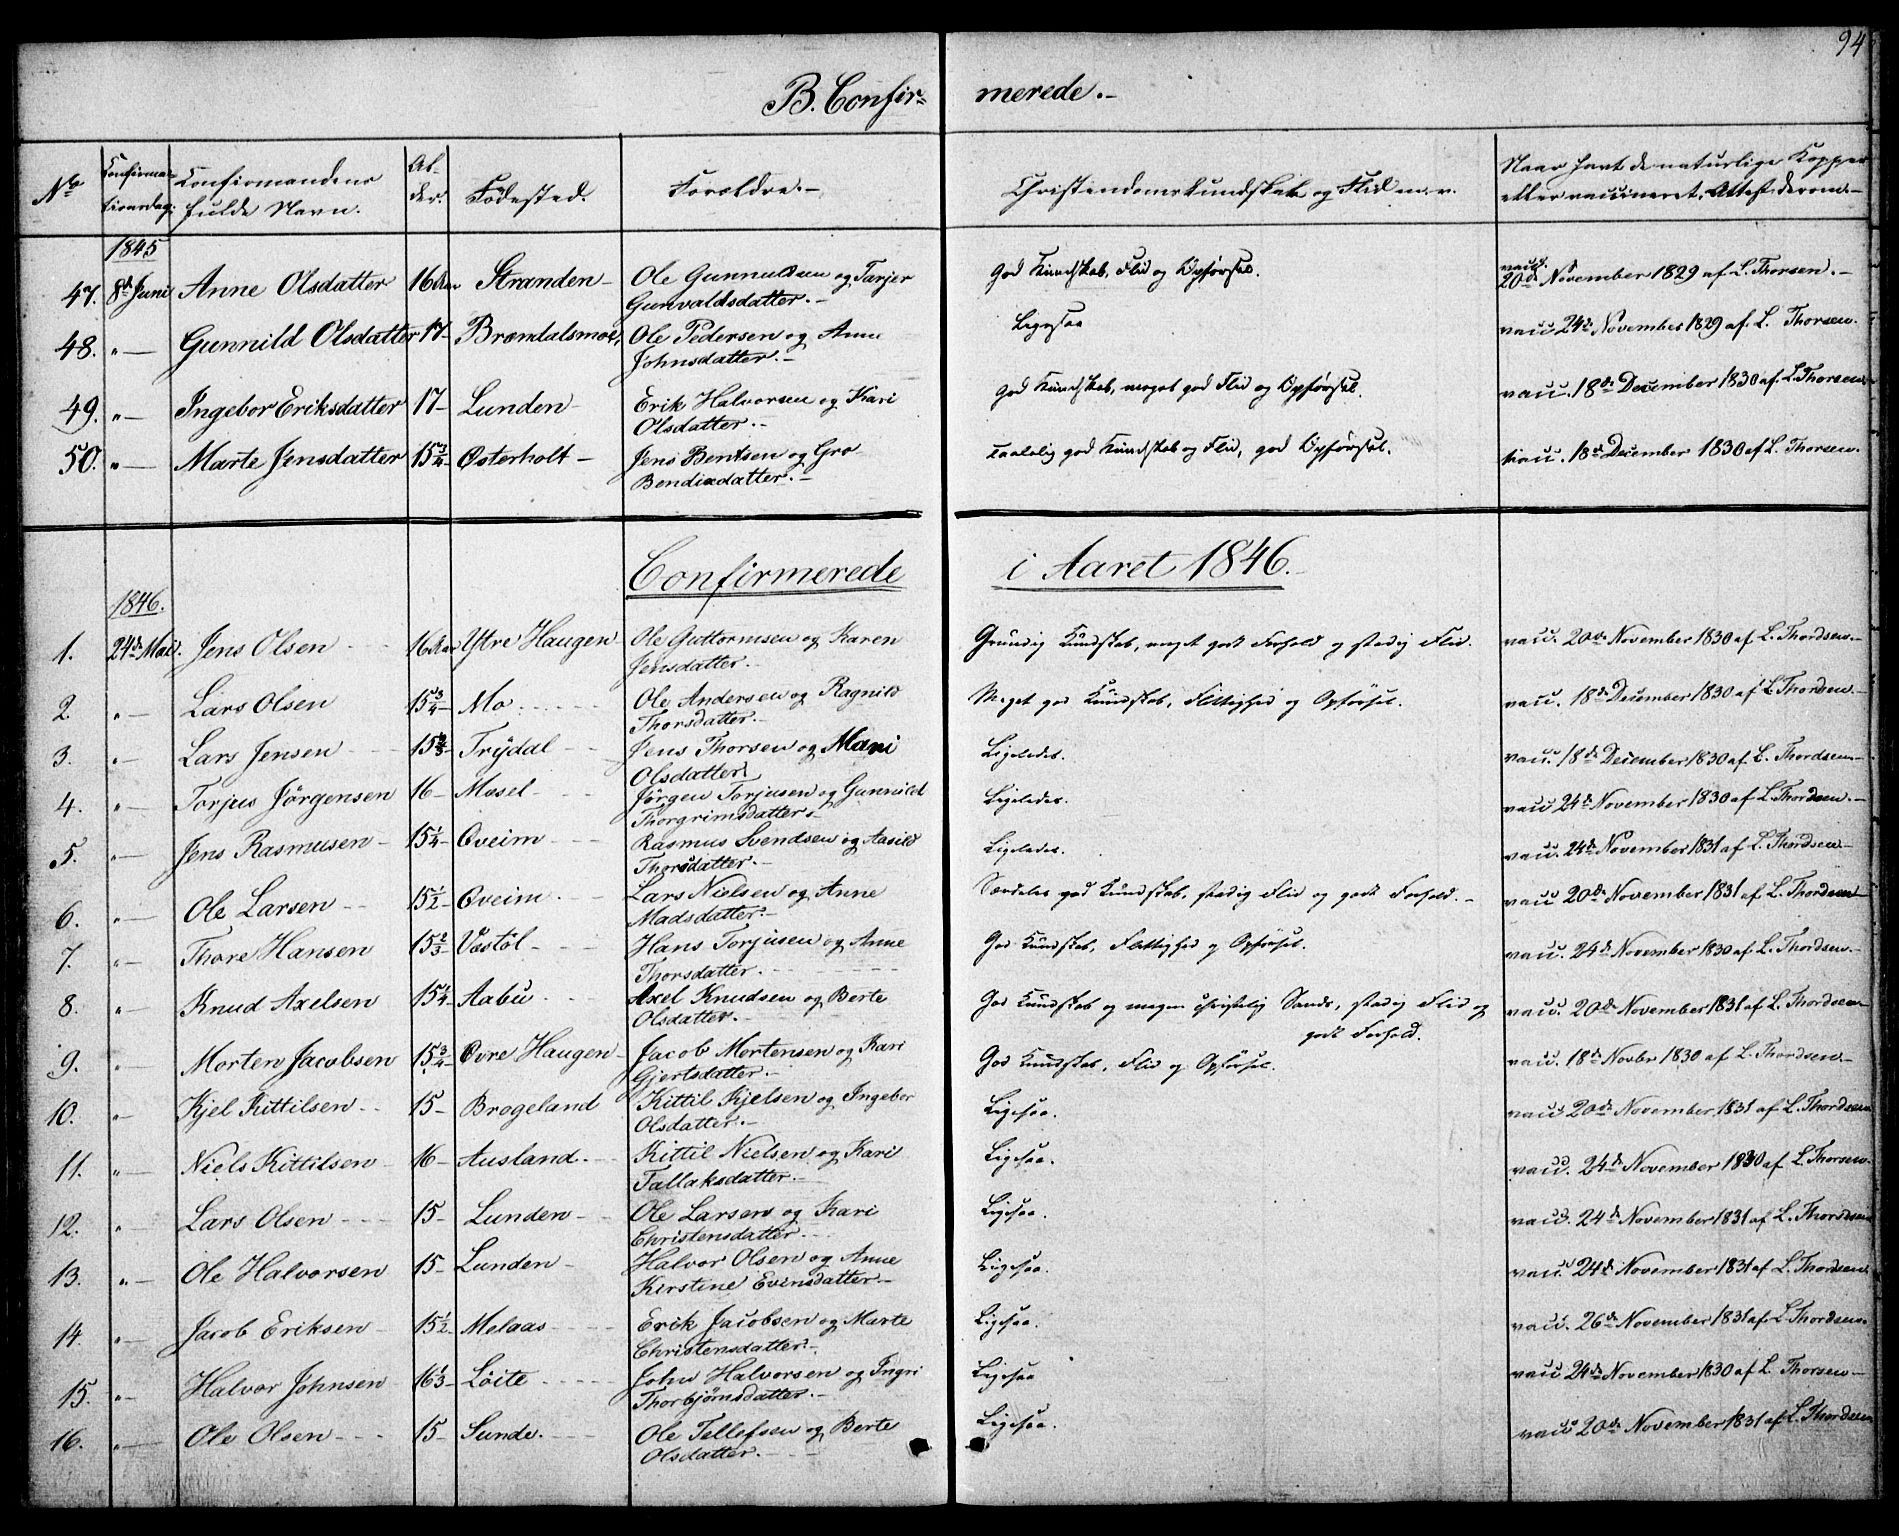 94
B. Confir= merede.-
No Confirma- Confirmandens Al- Fødested. Forældre.- Christendomskundskab og Flid m. v. Naar havt de naturlige Kopper
tionsdag. fulde Navn. der. eller vaccineret. Attest derom.-
1845
47. 8de Juni Anne Olsdatter 16 Aar Stranden- Ole Gunnuldsen og Tarjer God Kundskab, Flid og Opførsel. vacc. 20de November 1829 af L. Thorsen.-
Gunvaldsdatter.-
48. "- Gunnild Olsdatter 17- Bromdalsmoe, Ole Pedersen og Anne Ligesaa vacc 24de November 1829 af L. Thorsen.
Johnsdatter.-
49. "- Ingebor Eriksdatter 17- Lunden- Erik Halvorsen og Kari God Kundskab, meget god Flid og Opførsel. vacc. 18de December 1830 af L. Thorsen.
Olsdatter.-
50. "- Marte Jensdatter 15 3/4 Østerholt- Jens Bentsen og Gro taalelig god Kundskab og Flid, god Opførsel. vacc. 18de December 1830 af L. Thorsen.
Bendixdatter.-
Confirmerede i Aaret 1846.
1846.
1. 24de Mai. Jens Olsen - - 16 Aar Ytre Haugen- Ole Guttormsen og Karen Grundig Kundskab, meget godt Forhold og stadig Flid. vacc. 20de November 1830 af L. Thordsen.-
Jensdatter.-
2. "- Lars Olsen 15 3/4- Mo - - - Ole Andersen og Ragnild Meget god Kundskab, Flittighed og Opførsel. vacc. 18de December 1830 af L. Thordsen.-
Thorsdatter.-
3. "- Lars Jensen - - 15 2/3- Trydal - - Jens Thorsen og Mari Ligeledes. vacc. 18de December 1830 af L. Thordsen-
Olsdatter.
4. "- Torjus Jörgensen 16- Mosel - - - Jörgen Torjusen og Gunnild Ligeledes. vacc 24de November 1830 af L. Thordsen.-
Thorgrimsdatter.-
5. "- Jens Rasmusen - 15 1/4- Oveim - - - Rasmus Svendsen og Aasild Ligeledes. vacc. 24de November 1831 af L. Thordsen-
Thorsdatter.-
6. "- Ole Larsen - - 15 1/2- Oveim - - Lars Nielsen og Anne Særdeles god Kundskab, stadig Flid og godt Forhold.- vacc 20de November 1831 af L. Thordsen-
Madsdatter.-
7. "- Thore Hansen 15 2/3- Vestöl - - Hans Torjusen og Anne God Kundskab, Flittighed og Opførsel. vacc. 24de November 1830 af L. Thordsen.-
Thorsdatter.- - - -
8. "- Knud Axelsen 15 1/4- Aabu - - Axel Knudsen og Berte God Kundskab og megen christelig Sands, stadig Flid og vacc. 20de November 1831 af L. Thordsen-
Olsdatter.- godt Forhold.
9. "- Morten Jacobsen 15 3/4- Øvre Haugen- Jacob Mortensen og Kari God Kundskab, Flid og Opførsel. vacc. 18de Novbr 1830 af L. Thordsen-
Gjertsdatter.-
10. "- Kjel Kittilsen - - 15- Brogeland Kittil Kjelsen og Ingebor Ligesaa. vacc 20de November 1831 af L. Thordsen
Olsdatter.-
11. "- Niels Kittilsen - 16- Ausland. - - Kittil Nielsen og Kari Ligesaa. vacc. 24de November 1830 af L. Thorsen.
Tallaksdatter.-
12. "- Lars Olsen - - - 15- Lunden - - Ole Larsen og Kari Ligesaa. vacc. 24de November 1831 af L. Thordsen
Christensdatter. - -
13. "- Ole Halvorsen 15- Lunden - Halvor Olsen og Anne Ligesaa. vacc. 24de November 1831 af L. Thordsen.
Kirstine Evensdatter-
14. "- Jacob Eriksen - 15 1/2- Melaas - - - Erik Jacobsen og Marte Ligesaa. vacc. 26de November 1831 af L. Thordsen.
Christensdatter.-
15. "- Halvor Johnsen 16 1/3- Löite - - - John Halvorsen og Ingri Ligesaa vacc 24de November 1830 af L. Thorsen-
Thorbjörnsdatter. -
16. "- Ole Olsen - - - 15- Sunde. - - Ole Tellefsen og Berte Ligesaa. vacc 20de November 1831 af L. Thordsen
Olsdatter. - -